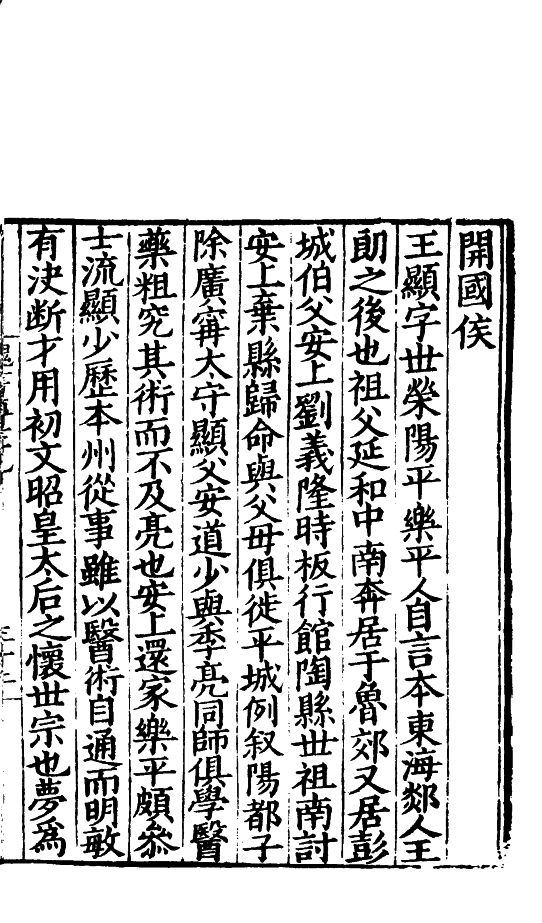 開國侯
王顯字世榮陽平樂平人自言本東海郯人王
朗之後也祖父延和中南奔居于魯郊又居彭
城伯父安上劉義隆時板行館陶縣世祖南討
安上棄縣歸命與父母俱徙平城例叙陽都子
除廣甯太守顯父安道少與李亮同師俱學醫
藥粗究其術而不及亮也安上還家樂平頗叅
士流顯少歷本州從事雖以醫術自通而明敏
有决断才用初文昭皇太后之懷世宗也夢爲